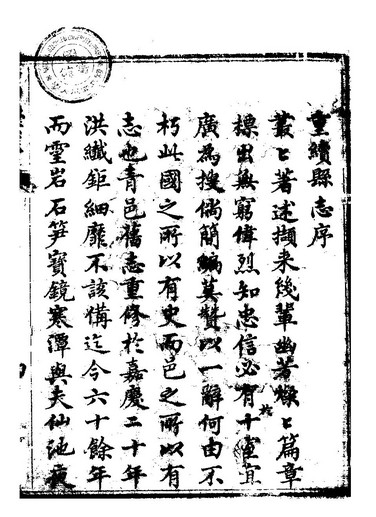 重續縣志序
叢叢著述擷來幾輩幽芳燦燦篇章
標出無窮偉烈知忠信必有於十室宜
廣為搜倘簡編莫贊以一辭何由不
朽此國之所以有史而邑之所以有
志也青邑舊志重修於嘉慶二十年
洪纖鉅細靡不該備迄今六十餘年
而靈岩石笋寶鏡寒潭與夫仙池